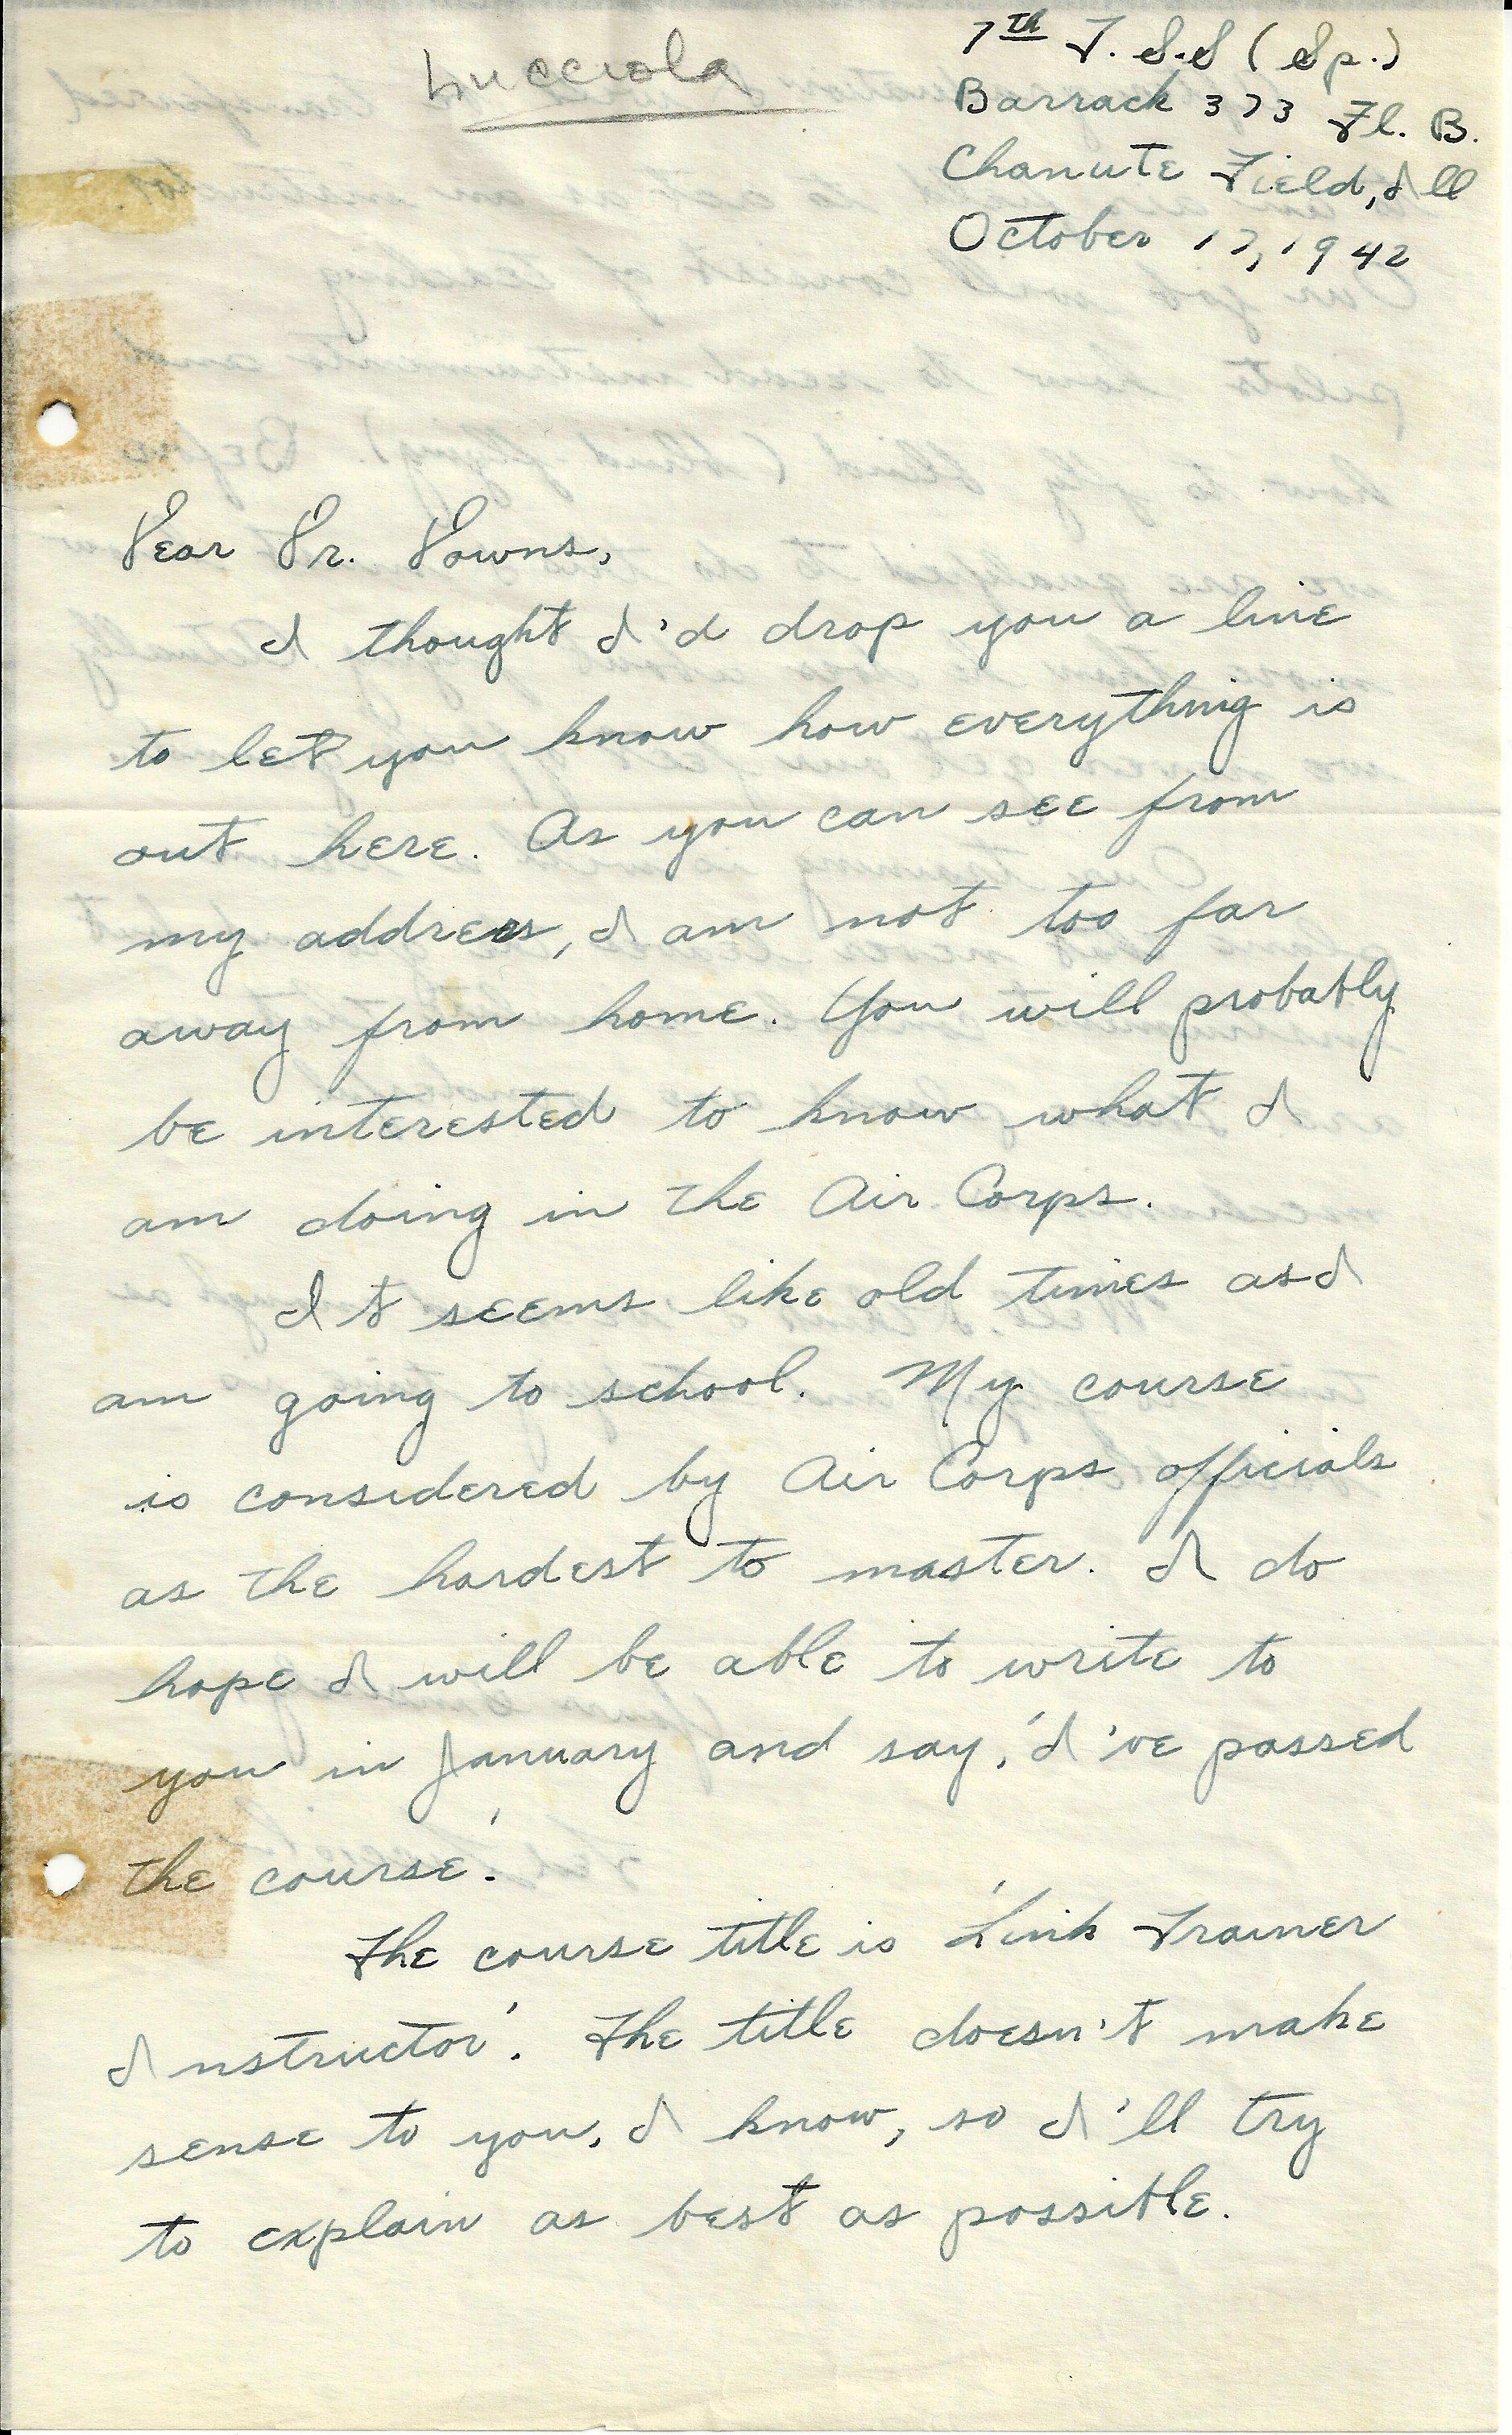 Lucciola
7th T.S.S (Sp.)
Barrack 373 Fl. B.
Chanute Field, Ill
October 17, 1942
Dear Dr. Downs,
I thought I'd drop you a line
to let you know how everything is
out here. As you can see from
my address, I am not too far
away from home. You will probably
be interested to know what I
am doing in the Air Corps.
It seems like old times as I
am going to school. My course
is considered by Air Corps officials
as the hardest to master. I do
hope I will be able to write to
you in January and say, 'I've passed
the course.'
The course title is 'Link Trainer
Instructor'. The title doesn't make
sense to you, I know, so I'll try
to explain as best as possible.